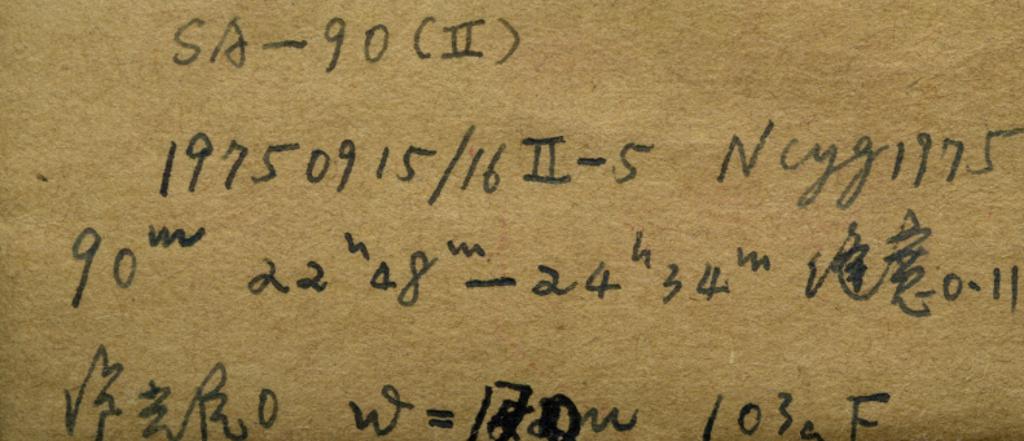 SA-90(II)
19750915/16 II-5 N Cyg 1975
90ᵐ 22ʰ48ᵐ-24ʰ34ᵐ 0.11
0 W= 103aF